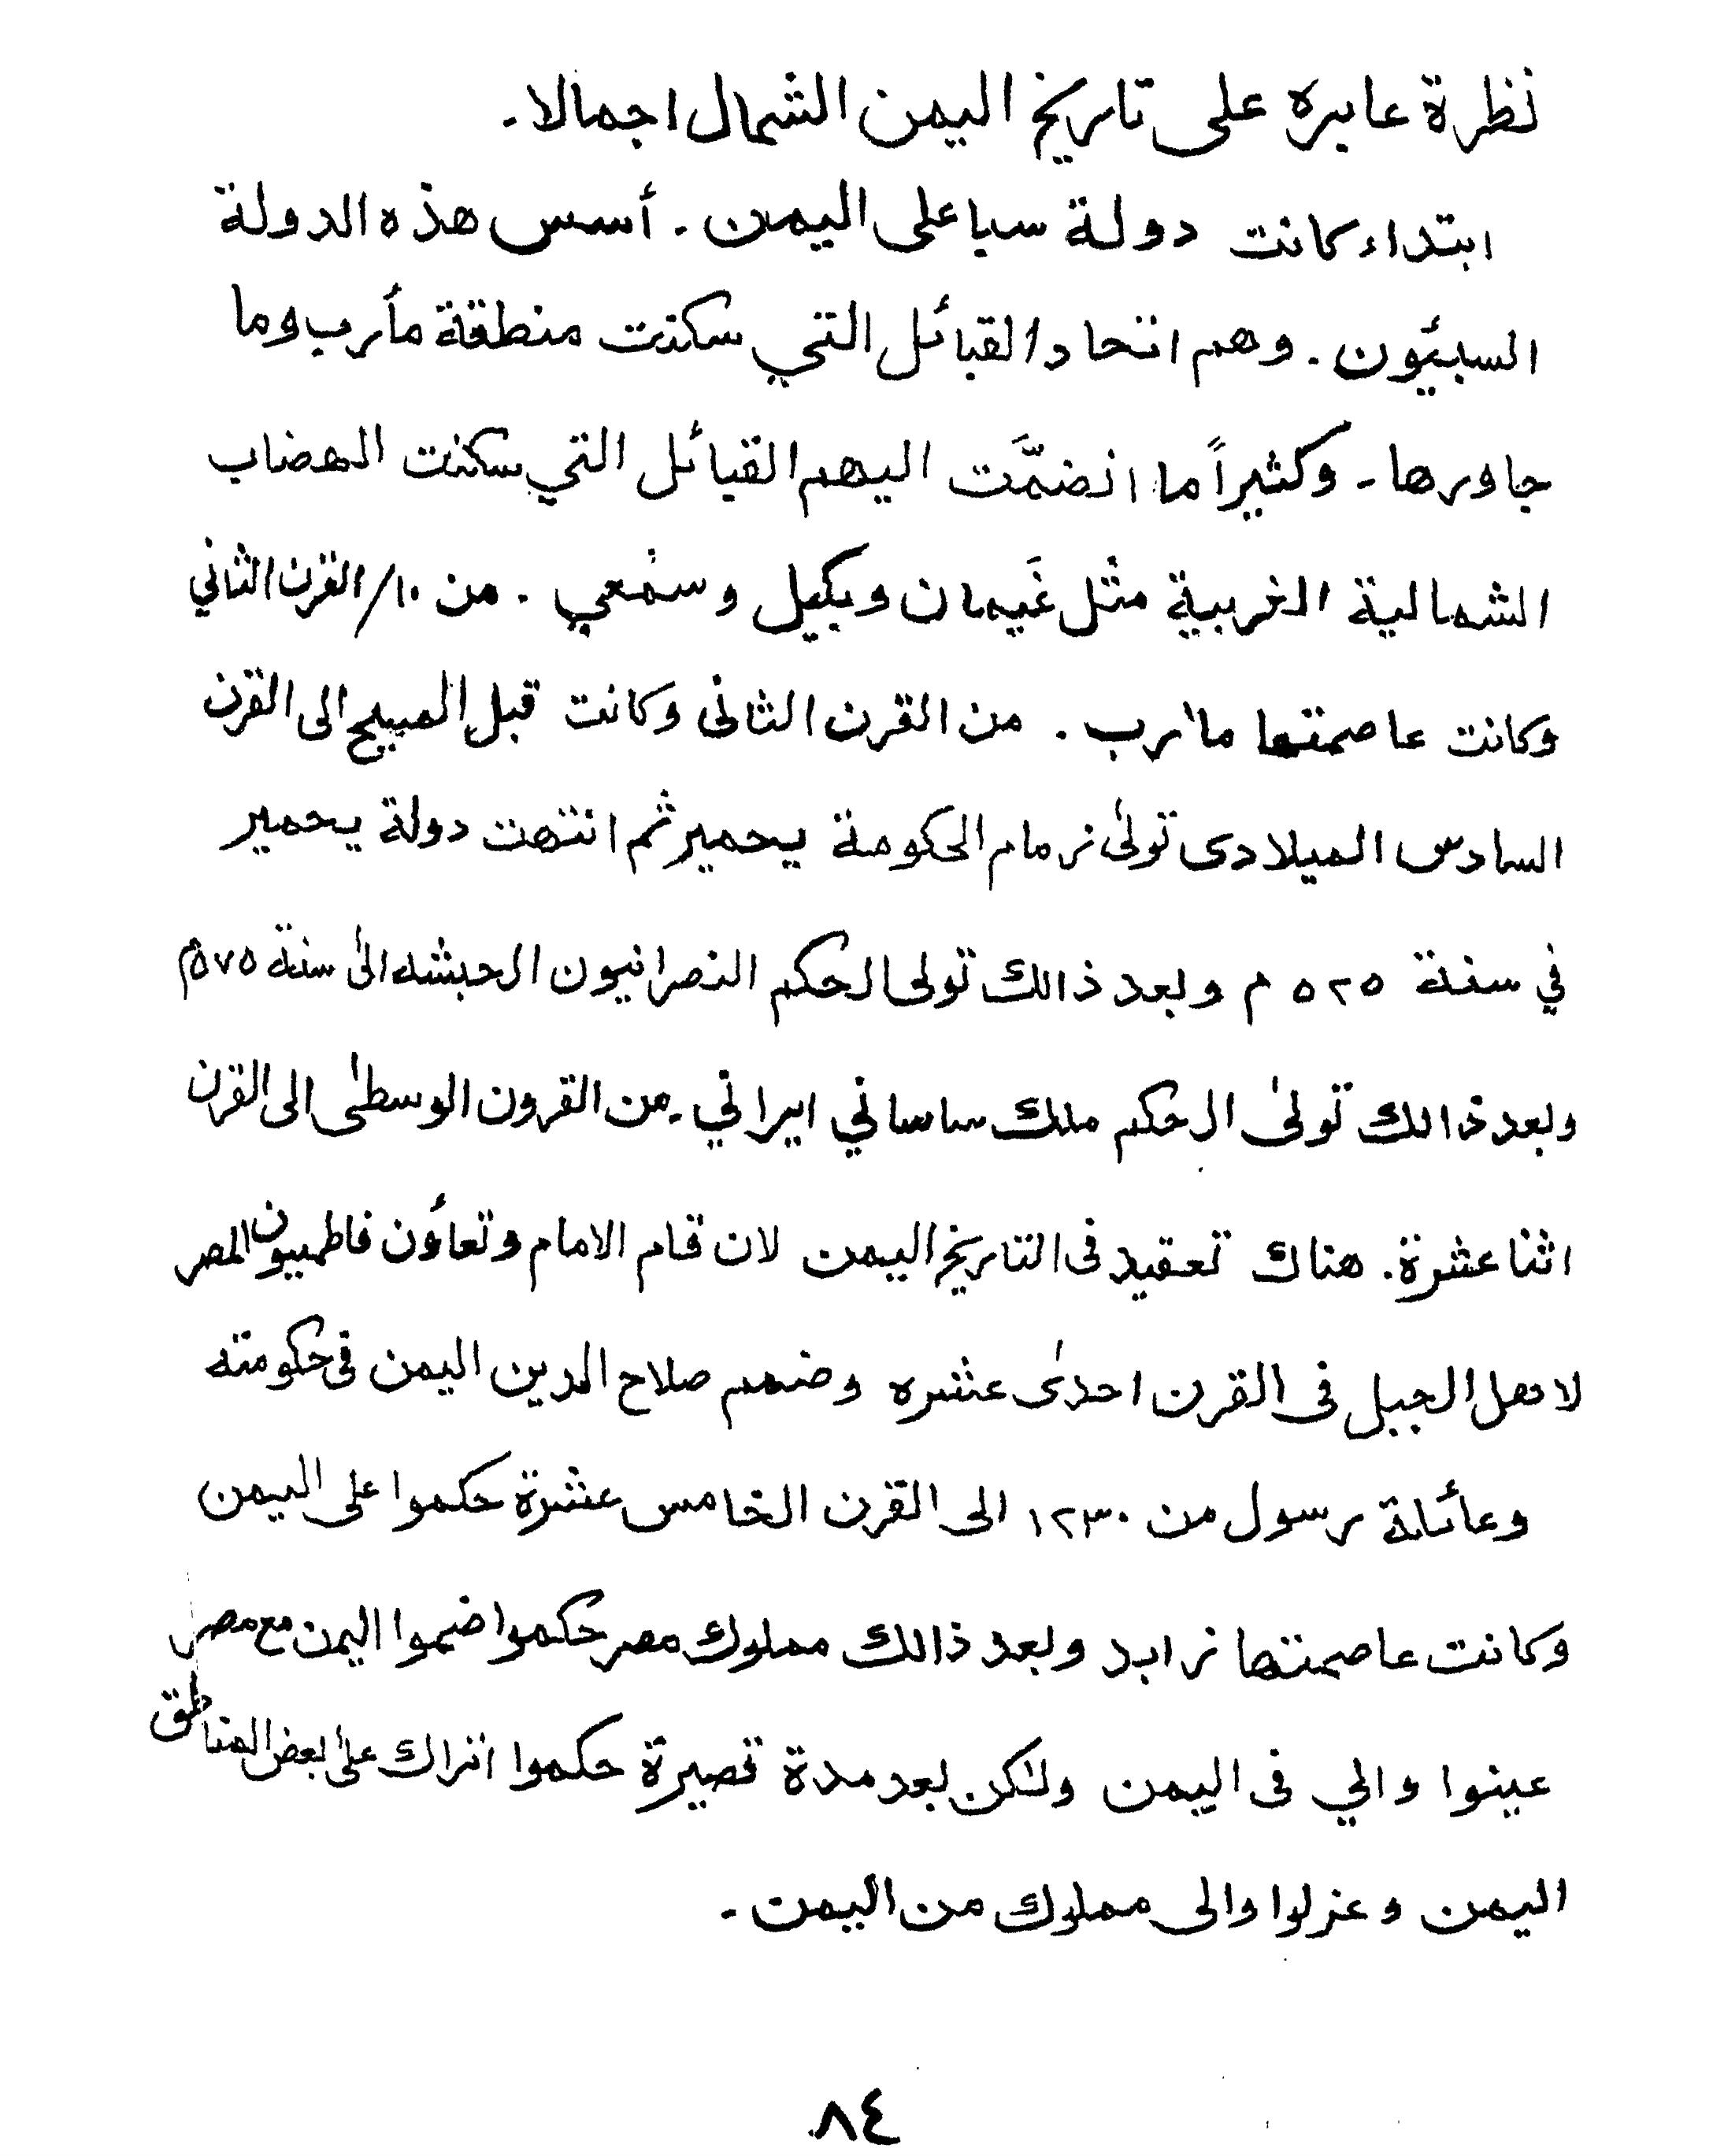 نظرة عابره على تاريخ اليمن الشمال اجمالا.
ابتداء كانت دولة سبا على اليمن. أسس هذه الدولة
السبئون. وهم اتحاد القبائل التي سكنت منطقة مأرب وما
جاورها. وكثيراً ما انضمَّت اليهم القبائل التي سكنت الهضاب
الشمالية الغربية مثل غَيمان وبكيل وسمعي. من ١٠/القرن الثاني
وكانت عاصمتها مأرب. من القرن الثانى وكانت قبل المسيح الى القرن
السادس الميلادى تولىٰ زمام الحكومة يحمير ثم انتهت دولة يحمير
في سنة ٥٢٥ م وبعد ذالك تولى الحكم النصرانيون الحبشه الىٰ سنة ٥٧٥م
وبعد ذالك تولىٰ الحكم ملك ساساني ايراني. من القرون الوسطىٰ الى القرن
اثنا عشرة. هناك تعقيد فى التاريخ اليمن لان قام الامام وتعاؤن فاطميون المصر
لاهل الجبل فى القرن احدىٰ عشره وضمم صلاح الدين اليمن فى حكومته
وعائلة رسول من ١٢٣٠ الى القرن الخامس عشرة حكموا على اليمن
وكانت عاصمتها زابد وبعد ذالك مملوك مصر حكموا ضموا اليمن مع مصر
عينوا والي فى اليمن ولٰكن بعد مدة قصيرة حكموا اتراك علىٰ بعض المناطق
اليمن وعزلوا والى مملوك من اليمن.
٨٤